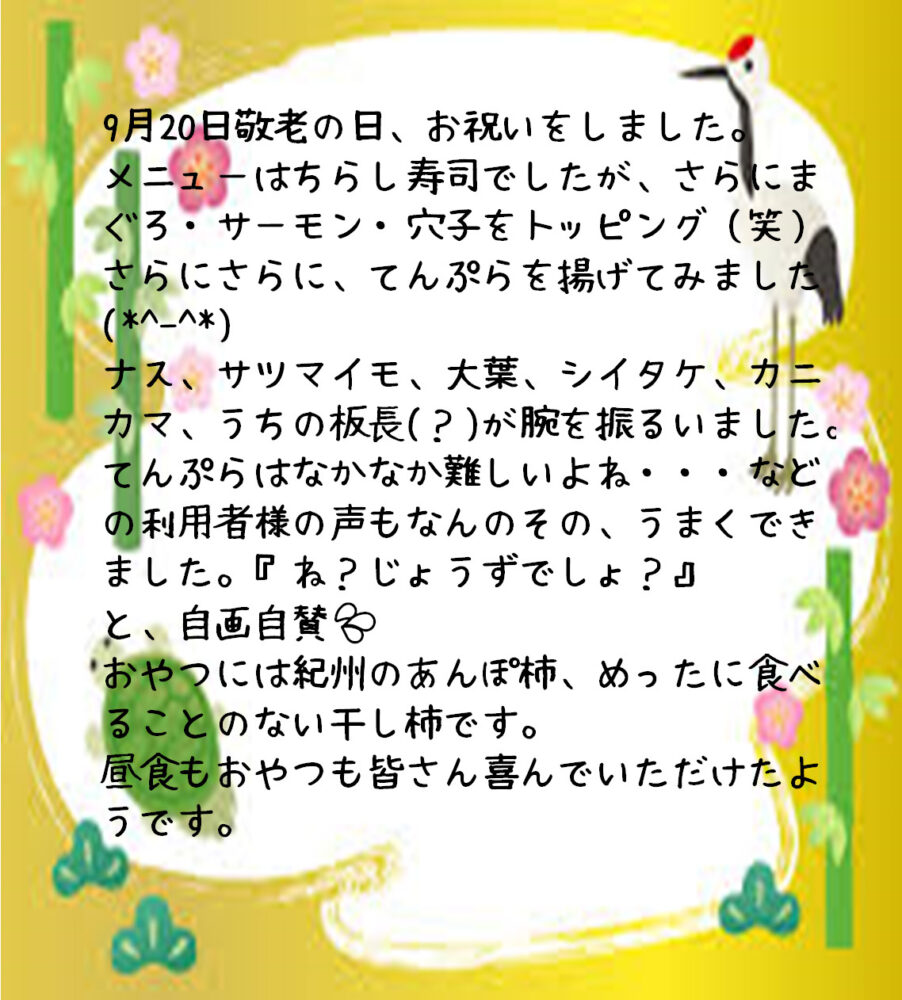 9月20日敬老の日、お祝いをしました。
メニューはちらし寿司でしたが、さらにま
ぐろ・サーモン・穴子をトッピング（笑）
さらにさらに、てんぷらを揚げてみました
(*^-^*)
ナス、サツマイモ、大葉、シイタケ、カニ
カマ、うちの板長(？)が腕を振るいました。
てんぷらはなかなか難しいよね・・・など
の利用者様の声もなんのその、うまくでき
ました。『ね？じょうずでしょ？』
と、自画自賛💨
おやつには紀州のあんぽ柿、めったに食べ
ることのない干し柿です。
昼食もおやつも皆さん喜んでいただけたよ
うです。